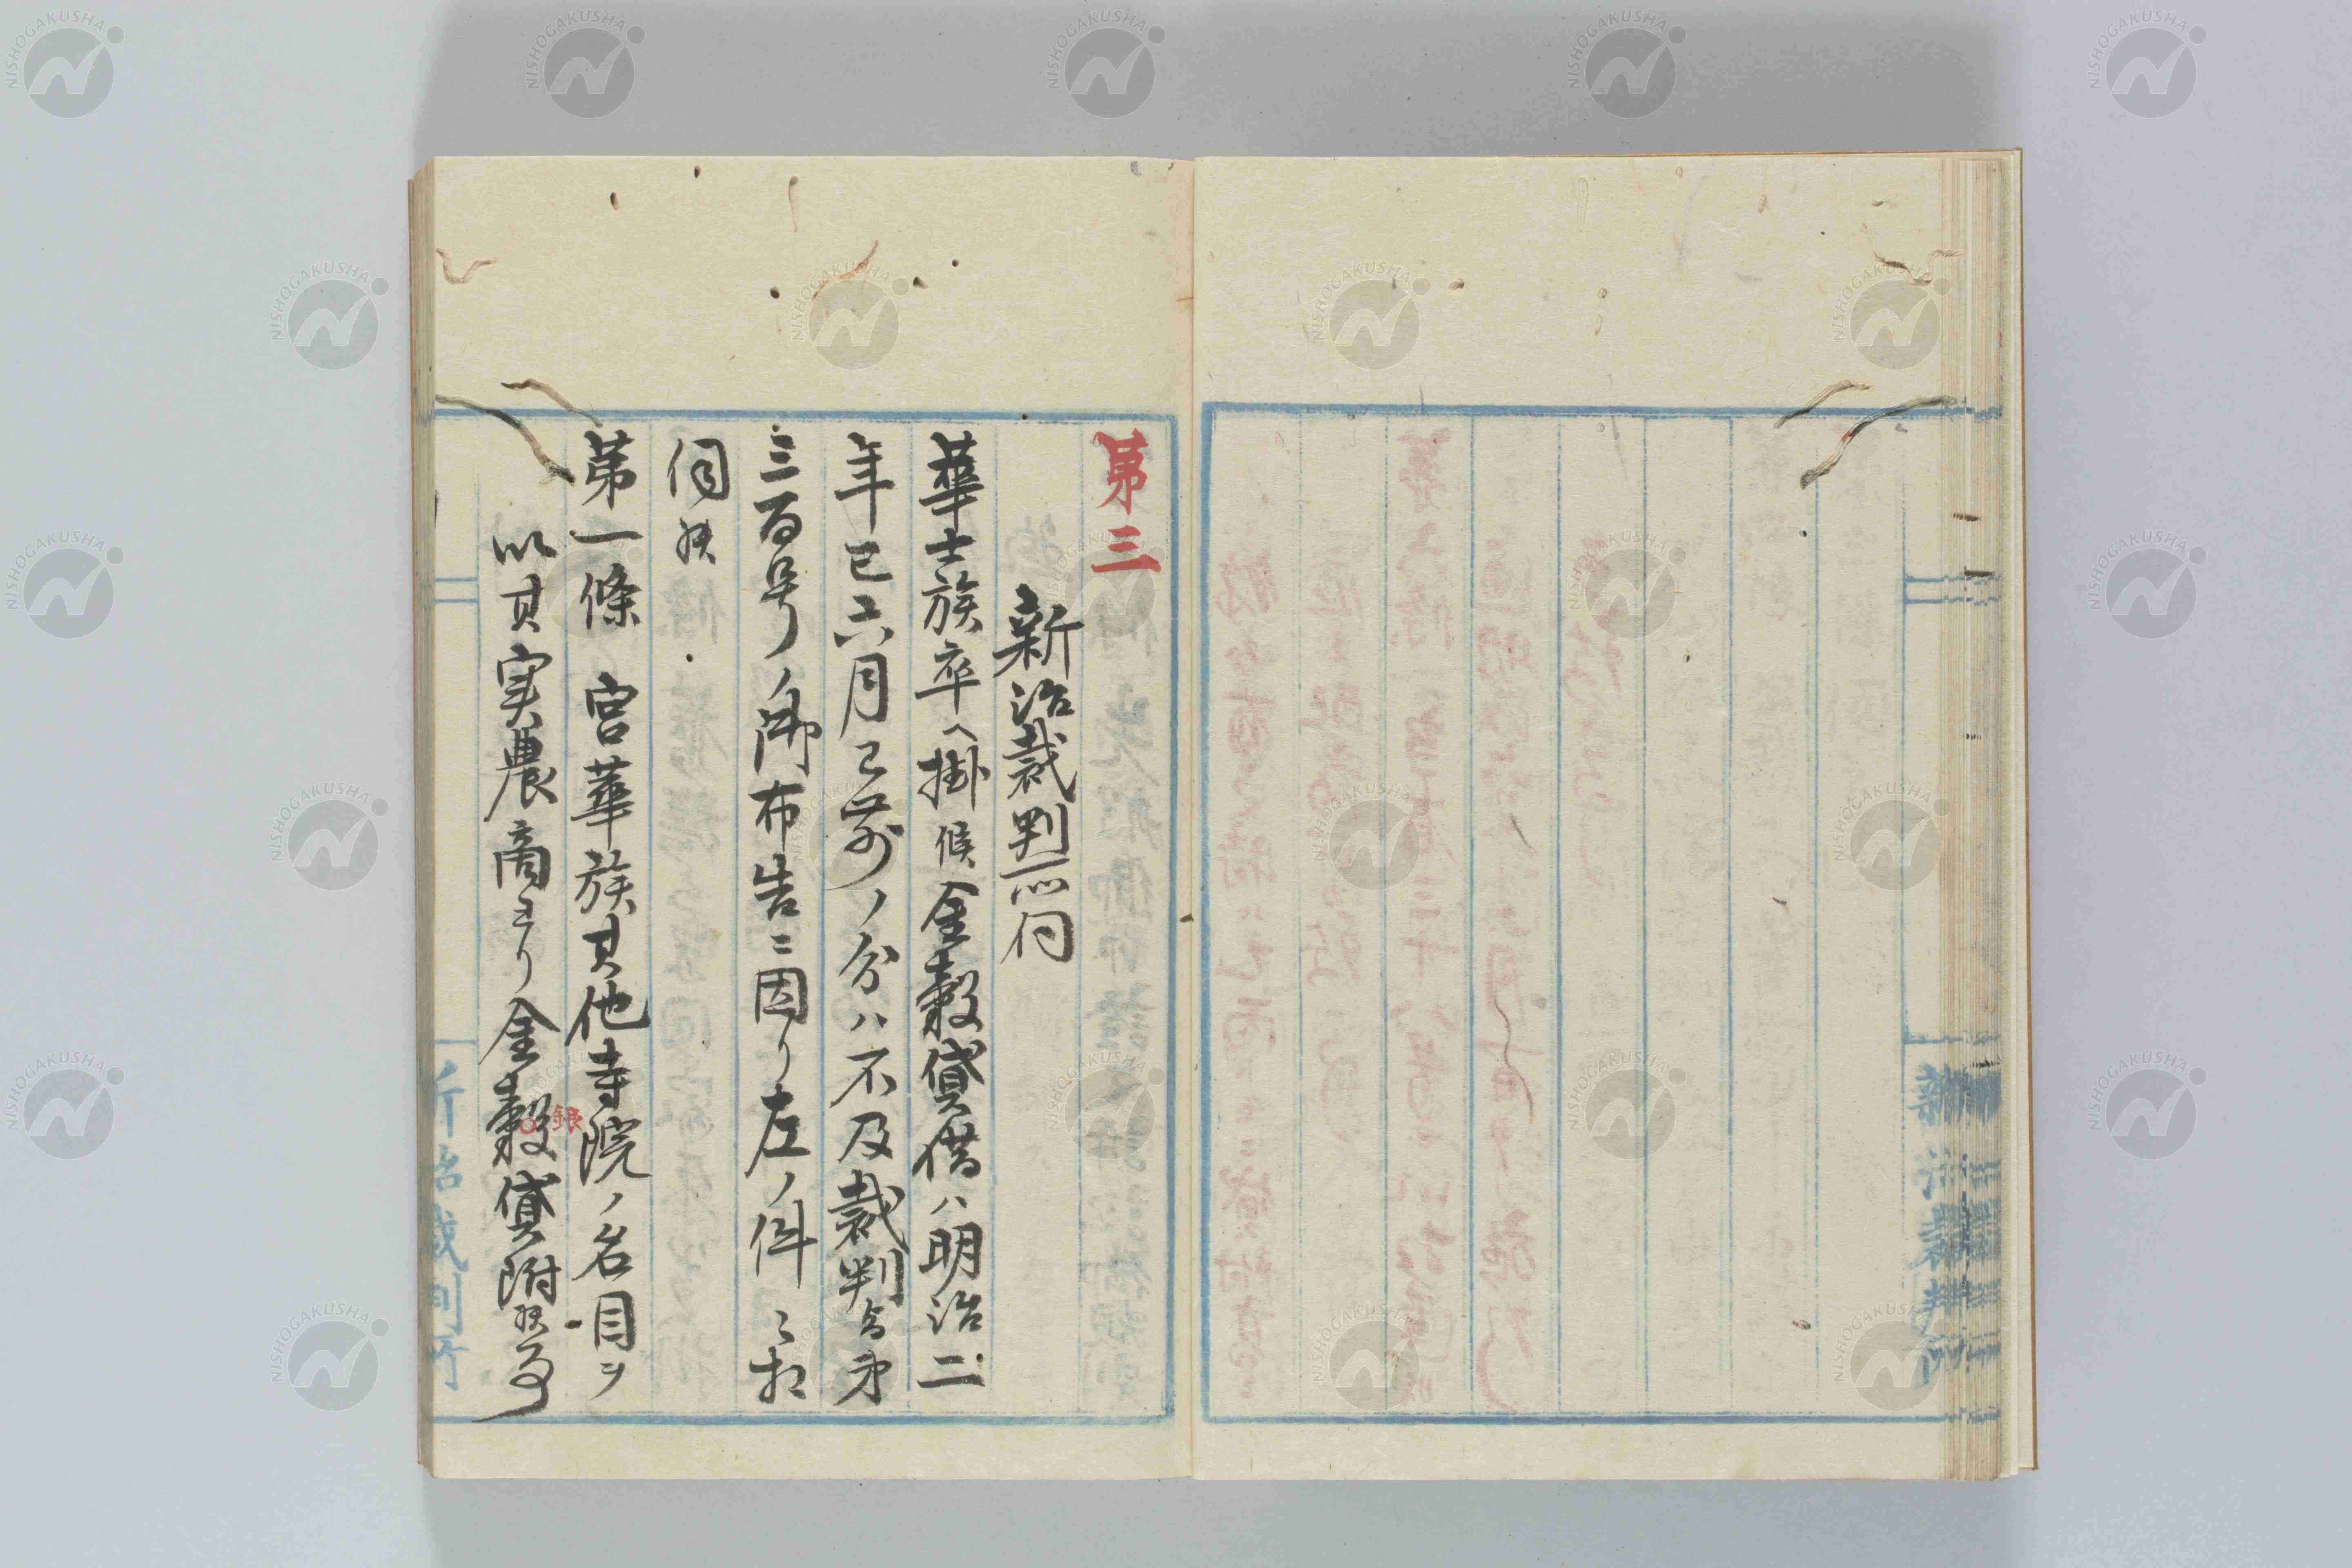 第三
新治裁判所伺
華士族卒ヘ掛候金穀貸借ハ明治二
年已六月已前ノ分ハ不及裁判旨第
三百号ノ御布告ニ因リ左ノ件々相
伺候
第一條 宮華族其他寺院ノ名目ヲ
以其実農商ヨリ金穀貸附候分
銀
新治裁判所
NISHOGAKUSHA